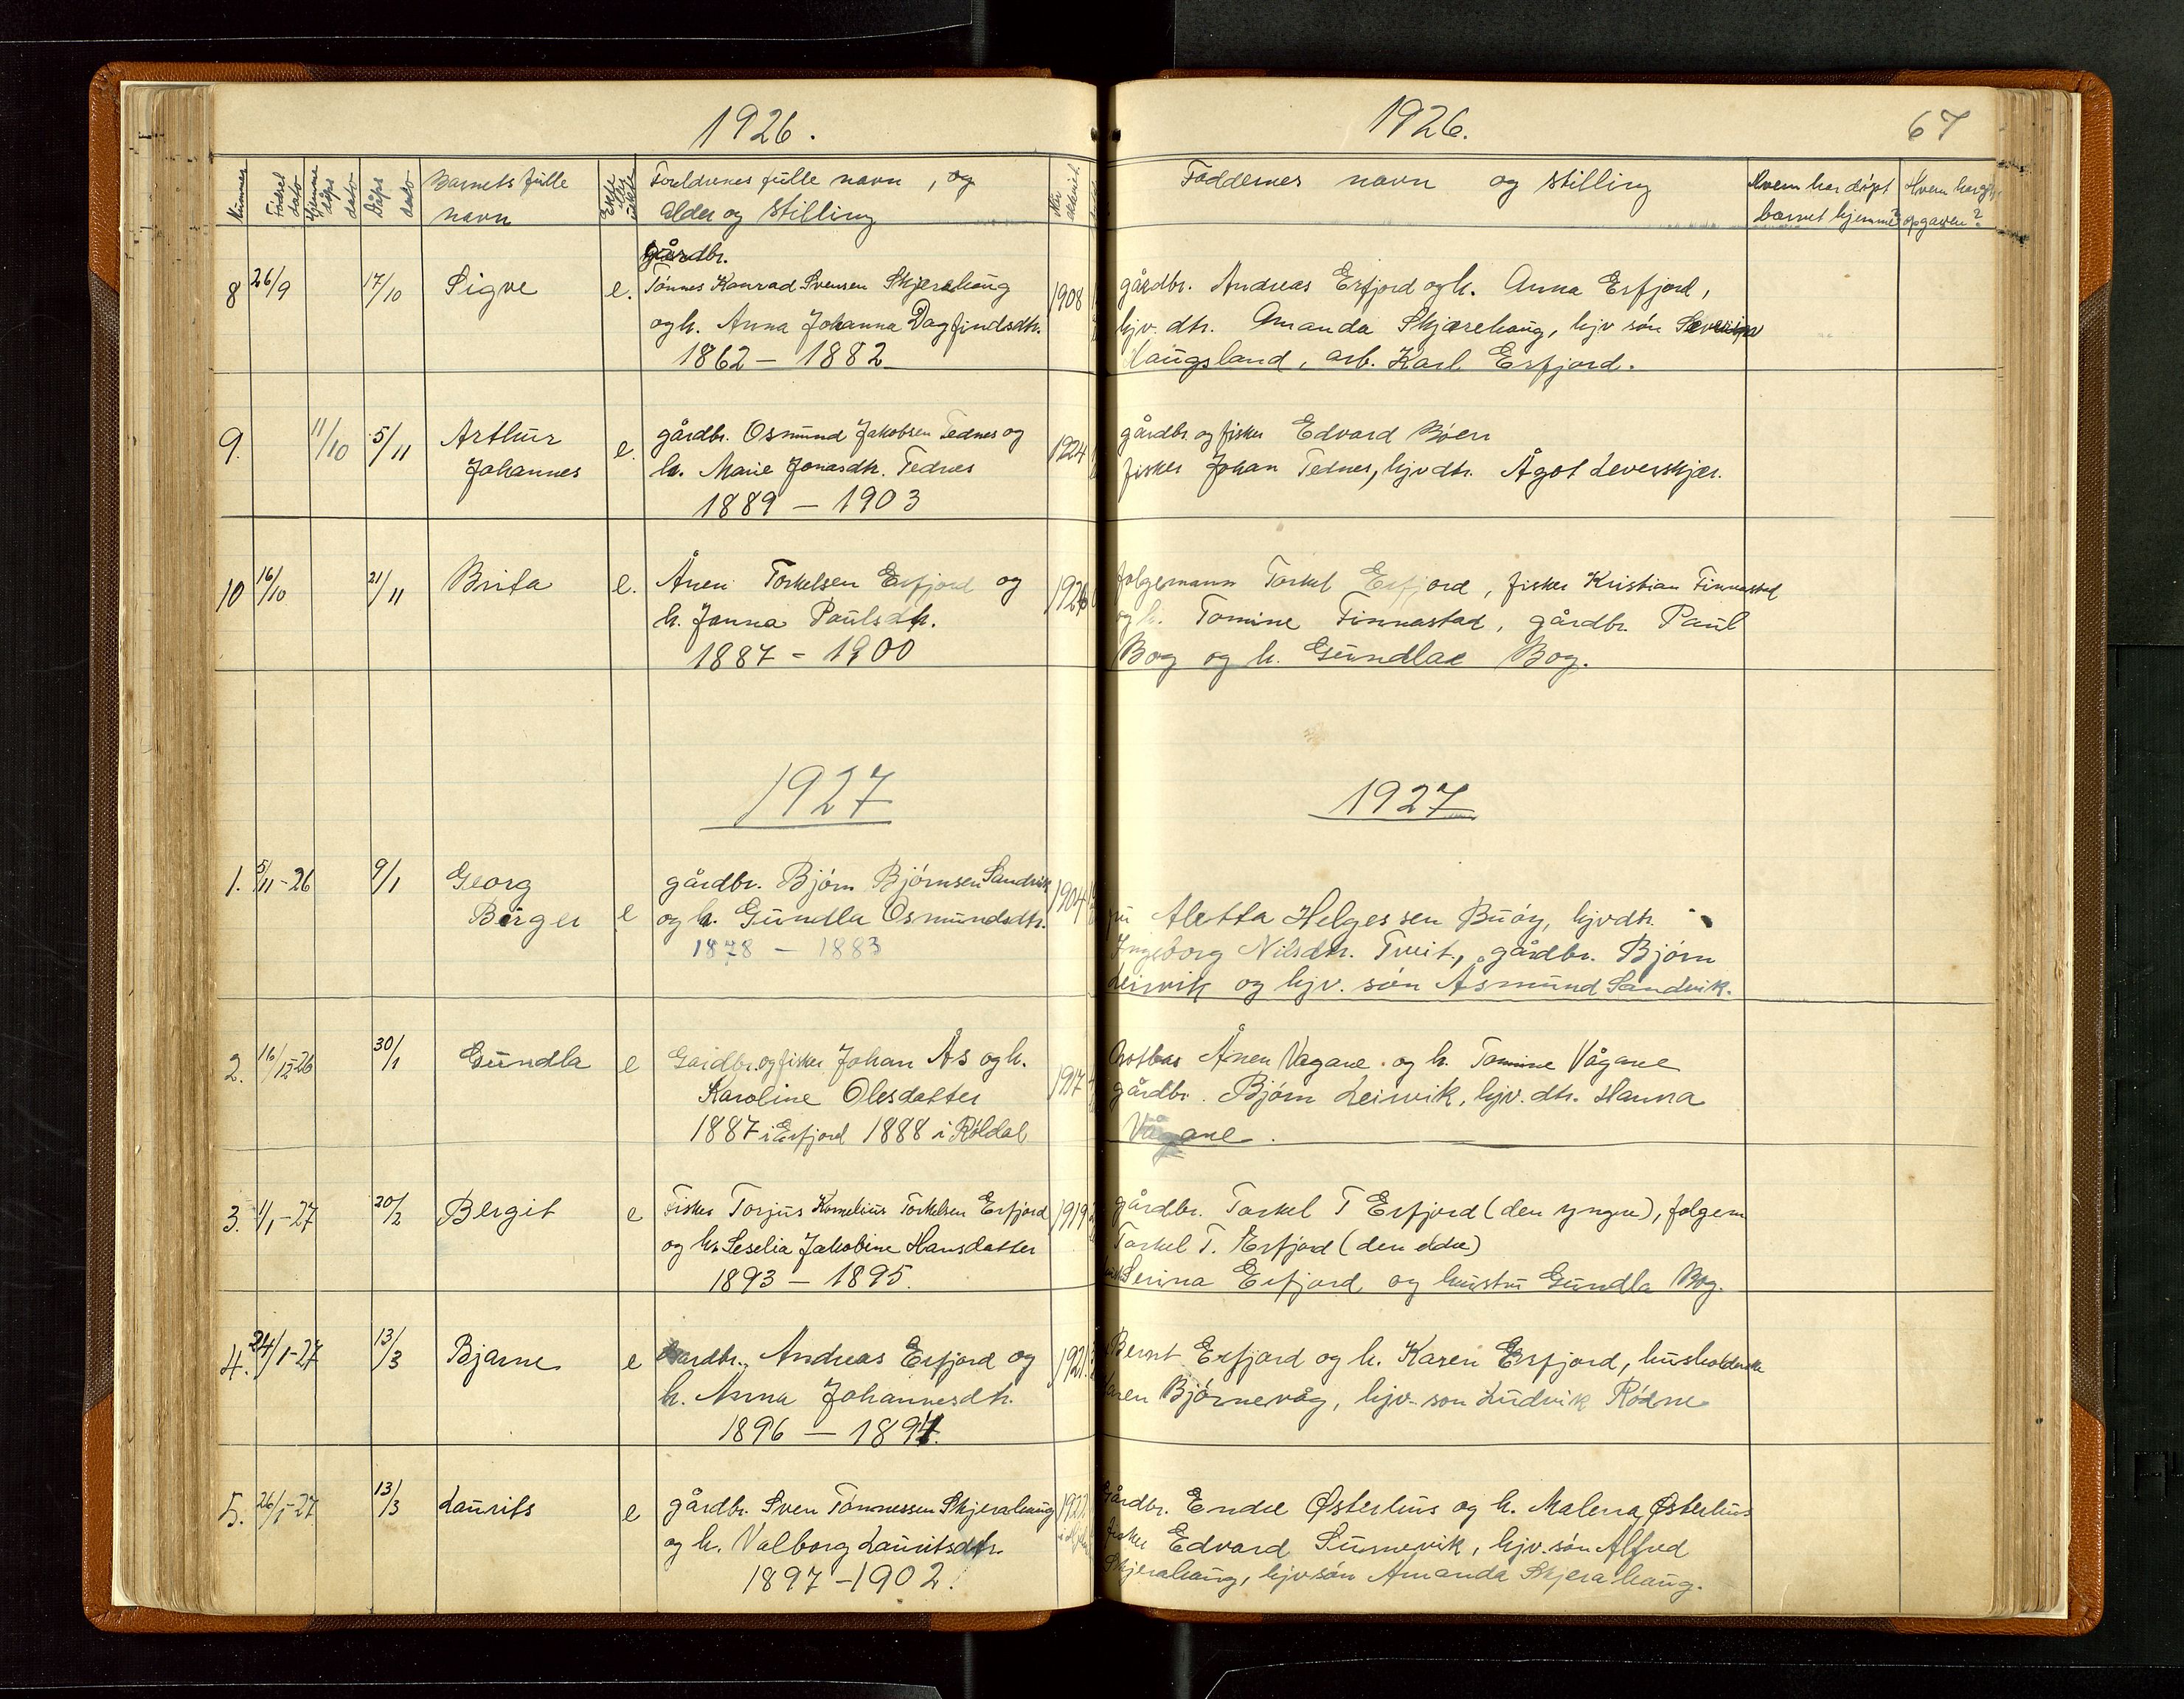 1926.
Nummer
Fødsel dato
Hjemme dåps dato
Dåps dato
Barnets fulle navn
Ekte eller uekte
Foreldrenes fulle navn, og
alder og stilling
8 26/9 17/10 Sigve e.
gårdbr.
Tønnes Konrad Svensen Skjerahaug 1908
og h. Anna Johanna Dagfindsdtr.
1862 – 1882
9. 11/10 5/11 Arthur Johannes e.
gårdbr. Osmund Jakobsen Tednes og 1924
h. Marie Jonasdtr. Tednes
1889 – 1903
10 16/10 21/11 Brita e.
Ånen Torkelsen Erfjord og 1926
h. Janna Paulsdtr.
1887 – 1900
1927
1. 5/11-26 9/1 Georg Birger e
gårdbr. Bjørn Bjørnsen Sandvik 1904
og h. Gundla Osmundsdtr.
1878 – 1883
2. 16/12-26 30/1 Gundla e
Gardbr. og fisker Johan Ås og h. 1917
Karoline Olesdatter
1887 i Erfjord 1888 i Røldal
3. 1/1-27 20/2 Bergit e
Fisker Torjus Kornelius Torkelsen Erfjord 1919
og h. Seselia Jakobine Hansdatter
1893 – 1895.
4. 24/1-27 13/3 Bjarne e
Gardbr. Andreas Erfjord og 1921.
h. Anna Johannesdtr.
1896 – 1894.
5. 26/1-27 13/3 Laurits e
gårdbr. Sven Tønnessen Skjerahaug
og h. Valborg Lauritsdtr.
1897 – 1902.
1926.
67
Faddernes navn og stilling
Hvem har døpt
barnet hjemme?
Hvem har gitt
opgaven?
gårdbr. Andreas Erfjord og h. Anna Erfjord,
hjv. dtr. Amanda Skjærehaug, hjv søn
Haugsland, arb. Karl Erfjord.
gårdbr. og fisker Edvard Bøen
fisker Johan Tednes, hjv dtr. Ågot Leverskjær.
folgemann Torkel Erfjord, fisker Kristian Finnastad
og h. Tomine Finnastad, gårdbr. Paul
Bog og h. Gundlae Bog.
1927
Aletta Helgessen Buøy, hjvdtr.
Ingeborg Nilsdtr. Tveit., gårdbr. Bjørn
Leirvik og hjv. søn Åsmund Sandvik.
Ånen Vagane. og h. Tomine Vågane
gårdbr. Bjørn Leirvik, hjv. dtr. Hanna
Vågane.
gårdbr. Torkel T Erfjord (den yngre), folgem
Torkel T. Erfjord (den eldre)
Serina Erfjord og hustru Gundla Bog.
Bernt Erfjord og h. Karen Erfjord, husholderske
Karen Bjørnevåg, hjv. son Ludvik Rødne
Gårdbr. Endre Østerhus og h. Malena Østerhus
fisker Edvard Sunnevik, hjv. søn Alfred
Skjerahaug, hjv søn Amanda Skjerahaug.